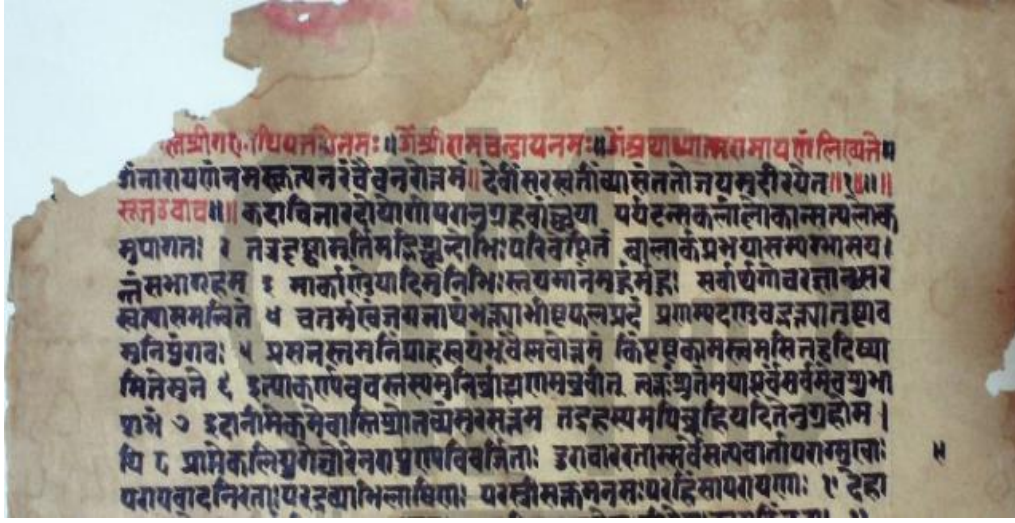 श्रीगणाधिपतयेनमः॥ॐश्रीरामचन्द्रायनमः॥ॐअथाध्यात्मरामायणंलिख्यते॥
ॐनारायणंनमस्कृत्यनरंचैवनरोत्तमं॥देवींसरस्वतींव्यासंततोजयमुदीरयेत॥१॥॥
सूतउवाच॥॥ कदाचिन्नारदोयोगीपरानुग्रहवांछया पर्यटन्सकलांलोकान्सत्यलोक
मुपागतः। २ तत्रदृष्ट्वामूर्तिमद्भिश्छन्दोभिःपरिवेष्टितं बालार्कप्रभयासम्यग्भासय।
न्तंसभागृहम् ३ मार्काण्डेयादिमुनिभिःस्तूयमानंमुहुर्मुहुः सर्वार्थगोचरज्ञानंसर
स्वत्यासमन्वितं ४ चतुर्मुखंजगन्नाथंभक्ताभीष्टफलप्रदं प्रणम्यदण्डवद्भक्त्यातुष्टाव
मुनिपुंगवः ५ प्रसन्नस्तंमुनिंप्राहस्वयंभूर्वैष्णवोत्तमं किंप्रष्टुकामस्त्वमसितद्वदिष्या
मितेमुने ६ इत्याकर्ण्यवचस्तस्यमुनिर्ब्रह्माणमब्रवीत् त्वत्तःश्रुतंमयापूर्वंसर्वमेवशुभा
शुभं ७ इदानीमेकमेवास्तिश्रोतव्यंसुरसत्तम तद्रहस्यमपिब्रूहियदितेनुग्रहोम।
यि ८ प्राप्तेकलियुगेघोरेनरापुण्यविवर्जिताः दुराचाररताःसर्वेसत्यवार्तापराङ्मुखाः
परापवादनिरताःपरद्रव्याभिलाषिणाः परस्त्रीसक्तमनसःपरहिंसापरायणाः १० देहा